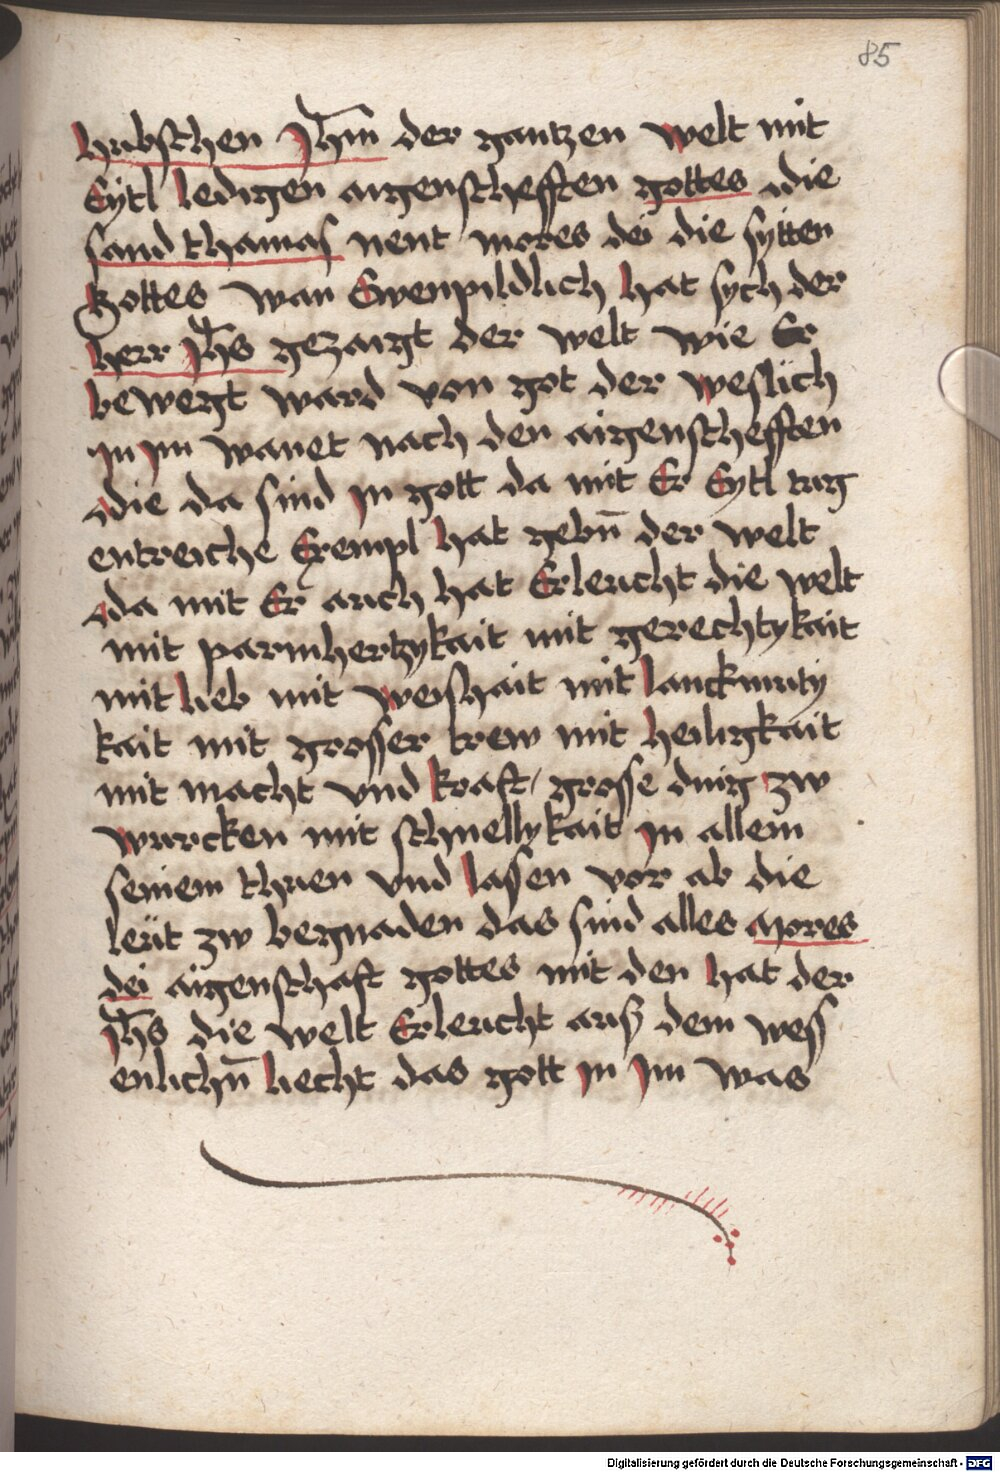 85
hubschen Jhm der gantzen welt mit
Eytl ledigen aigenschefften gottes die
sand thamas nent mores dei die sytten
gottes wan Ewenpildlich hat sych der
herr Jhs gezaigt der welt wie Er
bewegt ward von got der weslich
in im wanet nach den aigenschefften
die da sind in gott da mit Er Eytl tug
entreiche Exempl hat gebn̄ der welt
da mit Er auch hat Erleucht die welt
mit parmhertzykait mit gerechtykait
mit lieb mit weishait mit lanckmuty
kait mit grosser trew mit heiligkait
mit macht vnd kraft / grosse ding zw
wurcken mit schnellykait in allem
seinem thuen vnd lassen vor ab die
leüt zw begnaden das sind alles mores
dei aigenschaft gottes mit den hat der
Jhs die welt Erleucht ausz dem wess
enlichn̄ liecht das gott in im was
Digitalisierung gefördert durch die Deutsche Forschungsgemeinschaft - DFG